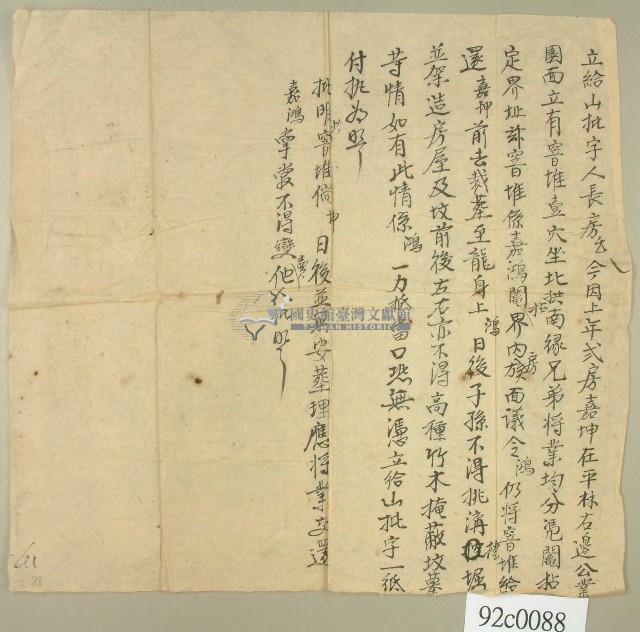 立給山批字人長房今因上年弍房嘉坤在平林右邊公業
園面立有窨堆壹穴坐北拱南緣兄弟將業均分憑鬮拈
定界址茲窨堆係嘉鴻鬮界內族房面議今鴻仍將窨堆給
還嘉坤前去栽塟至龍身上鴻日後子孫不得挑溝掘
並架造房屋及坟前後左右亦不得高種竹木掩蔽坟墓
等情如有此情係鴻一力抵當口恐無憑立給山批字一紙
付執為照
批明窨堆倘坤日後並無安塟理應將業交還
嘉鴻掌管不得變賣他人批照
國史館臺灣文獻館
TAIWAN HISTORICA
92c0088